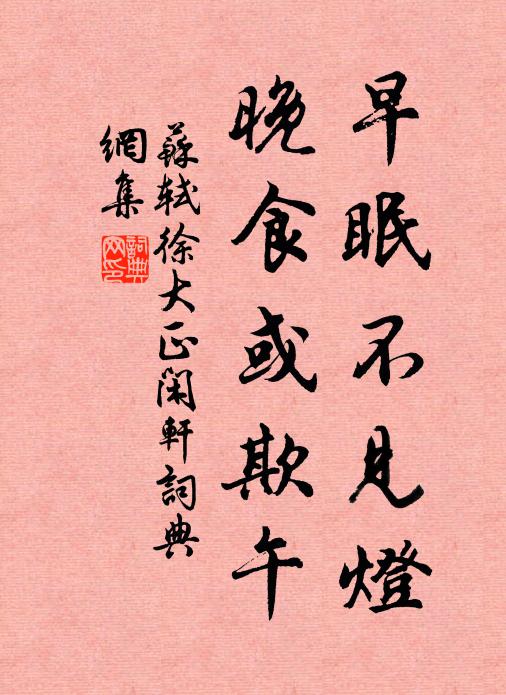 早眠不見燈
晚食或欺午
蘇軾徐大正閑軒詞典
網集
詞典
网印